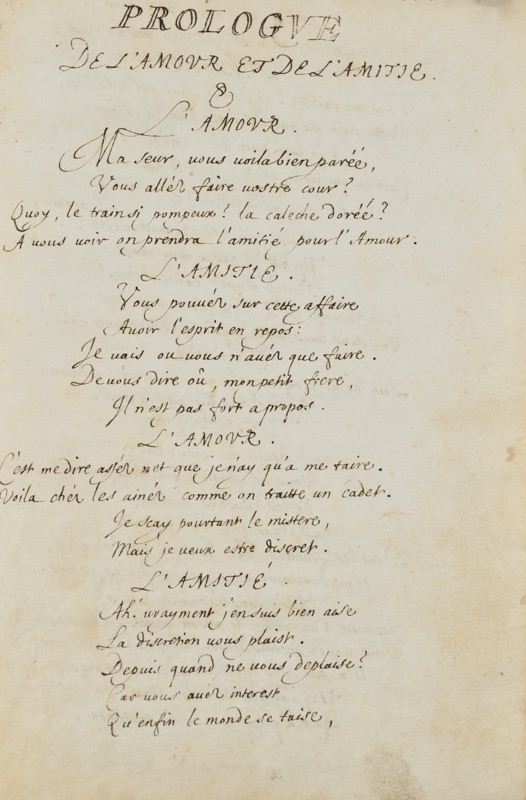 PROLOGVE
DE L'AMOVR ET DE L'AMITIE.
L'AMOVR.
Ma seur, vous voila bien paréé,
Vous alléz faire vostre cour?
Quoy, le train si pompeux? la caleche doréé?
A vous voir on prendra l'amitié pour l'Amour.
L'AMITIE.
Vous pouuéz sur cette affaire
Auoir l'esprit en repos:
Je vais ou vous n'auéz que faire.
De vous dire où, mon petit frere,
Il n'est pas fort a propos.
L'AMOVR.
C'est me dire asséz net que je n'ay qu'a me taire.
Voila chéz les ainéz comme on traitte un cadet.
Je scay pourtant le mistere,
Mais je veux estre discret.
L'AMITIÉ.
Ah! vrayment j'en suis bien aise
La discretion vous plaist.
Depuis quand ne vous deplaise?
Car vous auéz interest
Qu'enfin le monde se taise,